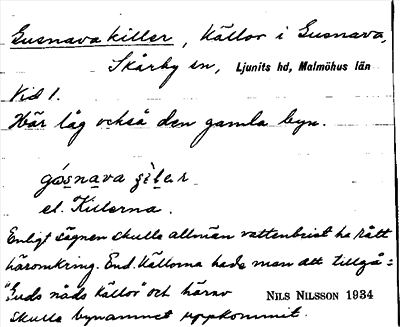 Gusnava killer, källor i Gusnava,
Skårby sn, Ljunits hd, Malmöhus län
Vid 1.
Här låg också den gamla byn.
gósnava
el. Killerna.
Enligt sägnen skulle allmän vattenbrist ha rått
häromkring. End. källorna hade man att tillgå:
"Guds nåds källor" och härav NILS NILSSON 1934
skulle bynamnet uppkommit.